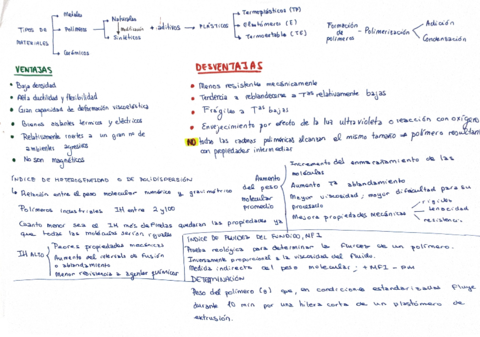 TIPOS DE MATERIALES
Metales
Polímeros
Cerámicos
Naturales
Sintéticos
Modificación
+ aditivos → PLÁSTICOS
Termoplásticos (TP)
Elastómeros (E)
Termoestable (TE)
Formación de polímeros - Polimerización
Adición
Condensación
VENTAJAS
• Baja densidad
• Alta ductilidad y flexibilidad
• Gran capacidad de deformación viscoelástica
• Buenos aislantes térmicos y eléctricos
• Relativamente inertes a un gran nº de
ambientes agresivos
• No son magnéticos
DESVENTAJAS
• Menos resistentes mecánicamente
• Tendencia a reblandecerse a Tªs relativamente bajas
• Frágiles a Tªs bajas
• Envejecimiento por efecto de la luz ultravioleta o reacción con oxígeno
NO todas las cadenas poliméricas alcanzan el mismo tamaño → polímero resultante
con propiedades intermedias
ÍNDICE DE HETEROGENEIDAD O DE POLIDISPERSIÓN
↳ Relación entre el peso molecular numérico y gravimétrico
Polímeros industriales IH entre 2 y 100
Cuanto menor sea el IH más definidas quedarán las propiedades ya
que todas las moléculas serían iguales
Aumento del peso molecular promedio
Incremento del enmarañamiento de las
moléculas
Aumento Tª ablandamiento
Mayor viscosidad, mayor dificultad para su
procesado
Mejora propiedades mecánicas
rigidez
tenacidad
resistencia.
IH ALTO
Peores propiedades mecánicas
Aumento del intervalo de fusión
o ablandamiento
Menor resistencia a agentes químicos
ÍNDICE DE FLUIDEZ DEL FUNDIDO, MFI
Prueba reológica para determinar la fluidez de un polímero.
Inversamente proporcional a la viscosidad del fluido.
Medida indirecta del peso molecular; + MFI - PM
DETERMINACIÓN
Peso del polímero (g) que, en condiciones estandarizadas fluye
durante 10 min por una hilera corta de un plastómero de
extrusión.